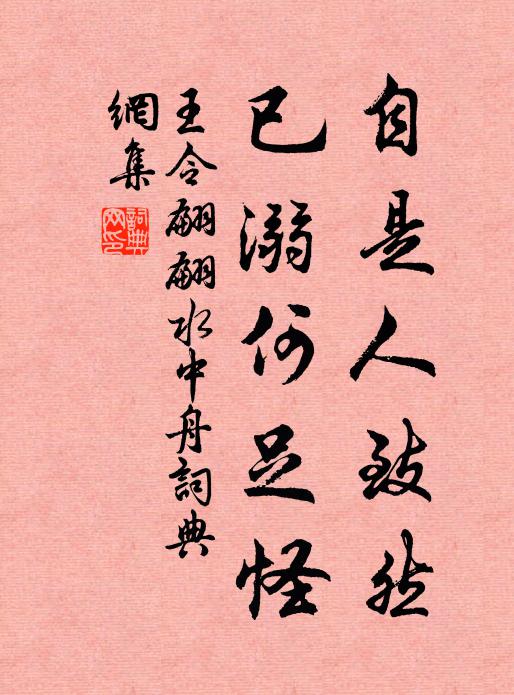 自是人致然
已溺何足怪
王令翩翩水中舟詞典
網集
詞典網印